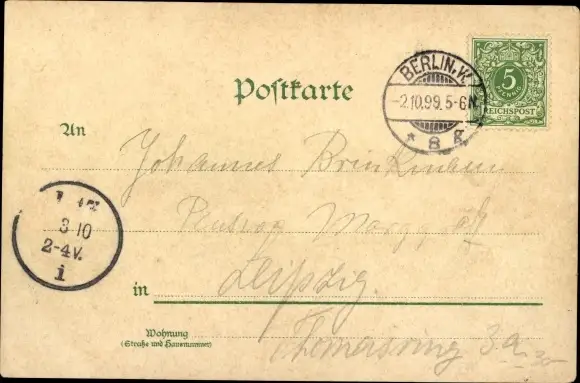 Postkarte
BERLIN.W.
-2.10.99.5-6N.
* 8 g.
5
PFENNIG
REICHSPOST
An
Johannes Brinkmann
Pension
3 10
2-4V.
1
Leipzig.
in
Wohnung
(Straße und Hausnummer)
Thomasring 3a